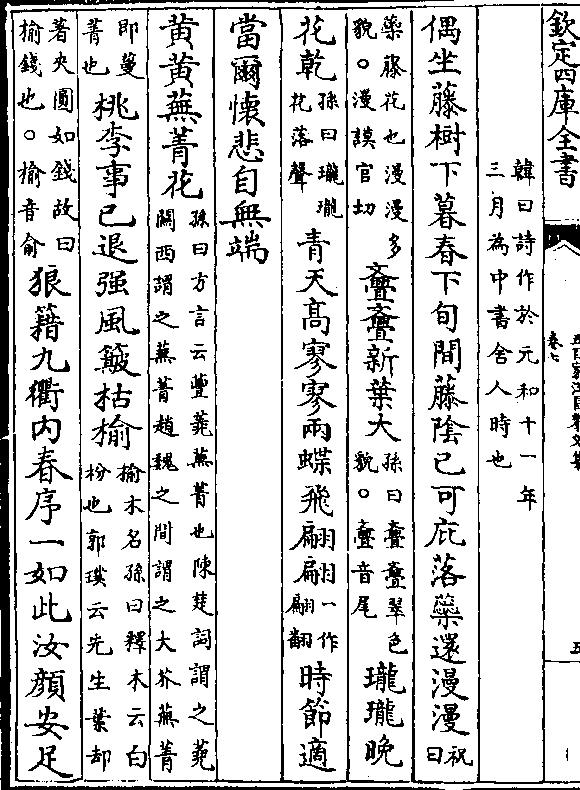 欽定四庫全書
卷七
五
韓曰詩作於元和十一年
三月為中書舍人時也
偶坐藤樹下暮春下旬間藤陰已可庇落蘂還漫漫祝曰
蘂藤花也漫漫多貌○漫謨官切亹亹新葉大孫曰亹亹翠色貌○亹音尾瓏瓏晚
花乾孫曰瓏瓏花落聲青天高寥寥兩蝶飛翩翩一作翩翻時節適
當爾懷悲自無端
黃黃蕪菁花孫曰方言云蘴蕘蕪菁也陳楚詞謂之蕘關西謂之蕪菁趙魏之間謂之大芥蕪菁
即蔓菁也桃李事已退强風簸枯榆榆木名孫曰釋木云白枌也郭璞云先生葉却
著夾圓如錢故曰榆錢也○榆音俞狼籍九衢內春序一如此汝顏安足